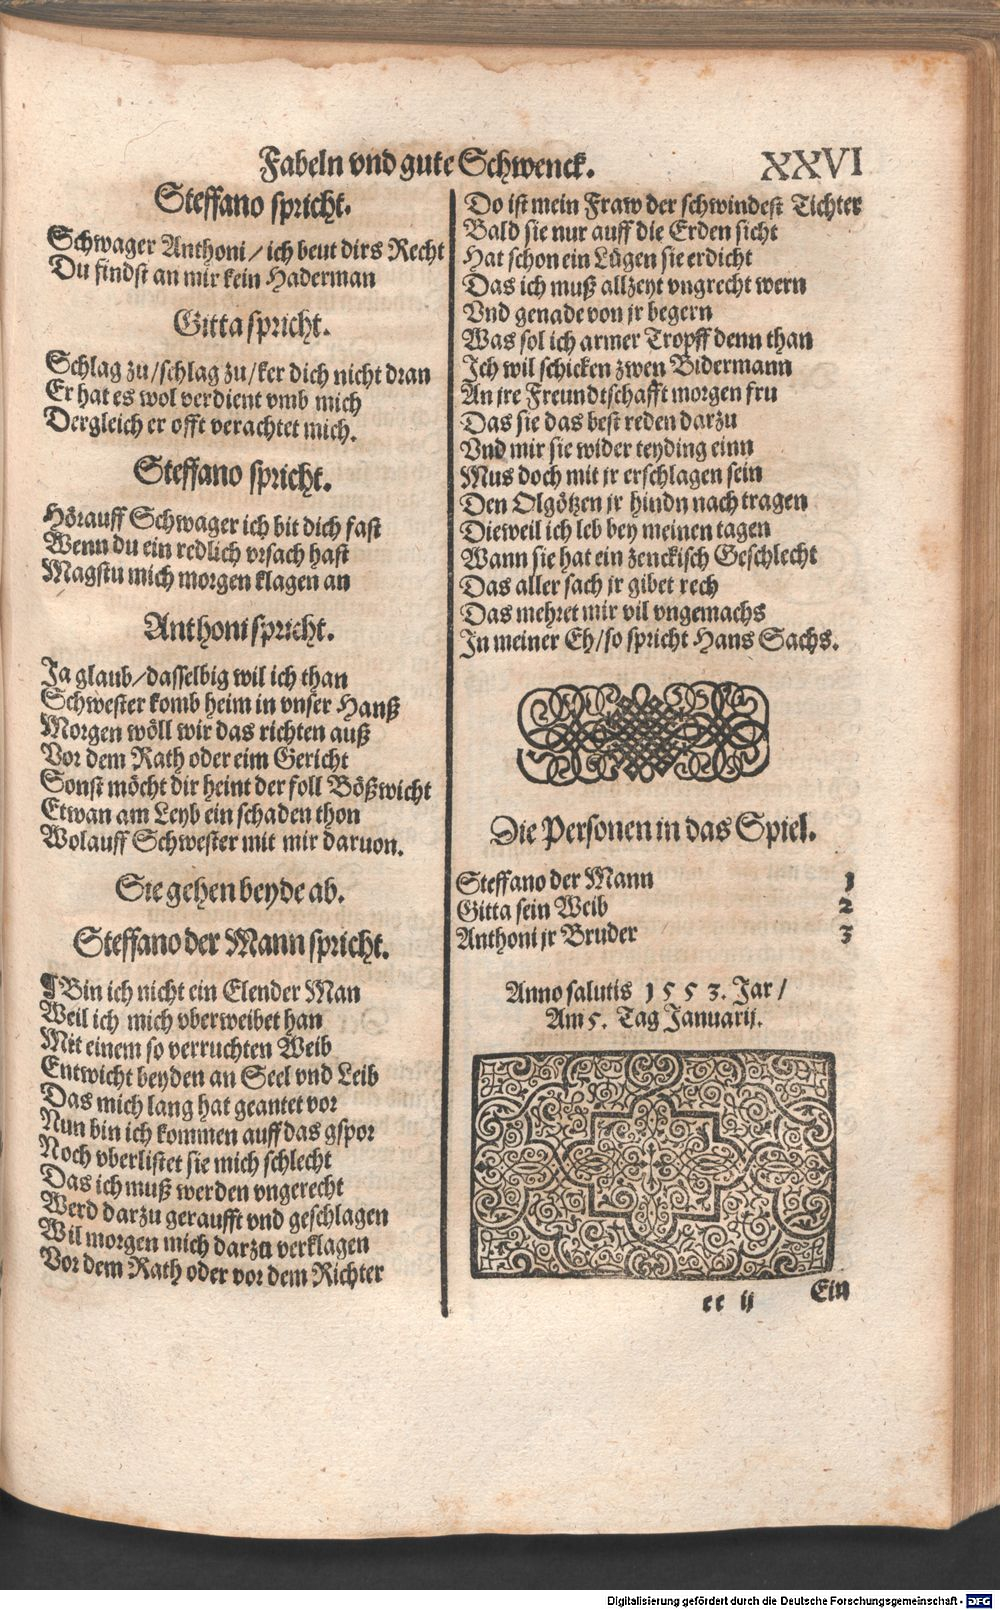 Fabeln vnd gute Schwenck. XXVI
Steffano spricht.
Schwager Anthoni / ich beut dirs Recht
Du findst an mir kein Haderman
Gitta spricht.
Schlag zu / schlag zu / ker dich nicht dran
Er hat es wol verdient vmb mich
Dergleich er offt verachtet mich.
Steffano spricht.
Hörauff Schwager ich bit dich fast
Wenn du ein redlich vrsach hast
Magstu mich morgen klagen an
Anthoni spricht.
Ja glaub / dasselbig wil ich than
Schwester komb heim in vnser Hanß
Morgen wöll wir das richten auß
Vor dem Rath oder eim Gericht
Sonst möcht dir heint der foll Bößwicht
Etwan am Leyb ein schaden thon
Wolauff Schwester mit mir daruon.
Sie gehen beyde ab.
Steffano der Mann spricht.
¶ Bin ich nicht ein Elender Man
Weil ich mich vberweibet han
Mit einem so verruchten Weib
Entwicht beyden an Seel vnd Leib
Das mich lang hat geantet vor
Nun bin ich kommen auff das gspor
Noch vberlistet sie mich schlecht
Das ich muß werden vngerecht
Werd darzu geraufft vnd geschlagen
Wil morgen mich darzu verklagen
Vor dem Rath oder vor dem Richter
Do ist mein Fraw der schwindest Tichter
Bald sie nur auff die Erden sicht
Hat schon ein Lügen sie erdicht
Das ich muß allzeyt vngrecht wern
Vnd genade von jr begern
Was sol ich armer Tropff denn than
Ich wil schicken zwen Bidermann
An jre Freundtschafft morgen fru
Das sie das best reden darzu
Vnd mir sie wider teyding einn
Mus doch mit jr erschlagen sein
Den Olgötzen jr hindn nach tragen
Dieweil ich leb bey meinen tagen
Wann sie hat ein zenckisch Geschlecht
Das aller sach jr gibet rech
Das mehret mir vil vngemachs
In meiner Eh / so spricht Hans Sachs.
Die Personen in das Spiel.
Steffano der Mann 1
Gitta sein Weib 2
Anthoni jr Bruder 3
Anno salutis 1553. Jar /
Am 5. Tag Januarij.
cc ij Ein
Digitalisierung gefördert durch die Deutsche Forschungsgemeinschaft - DFG